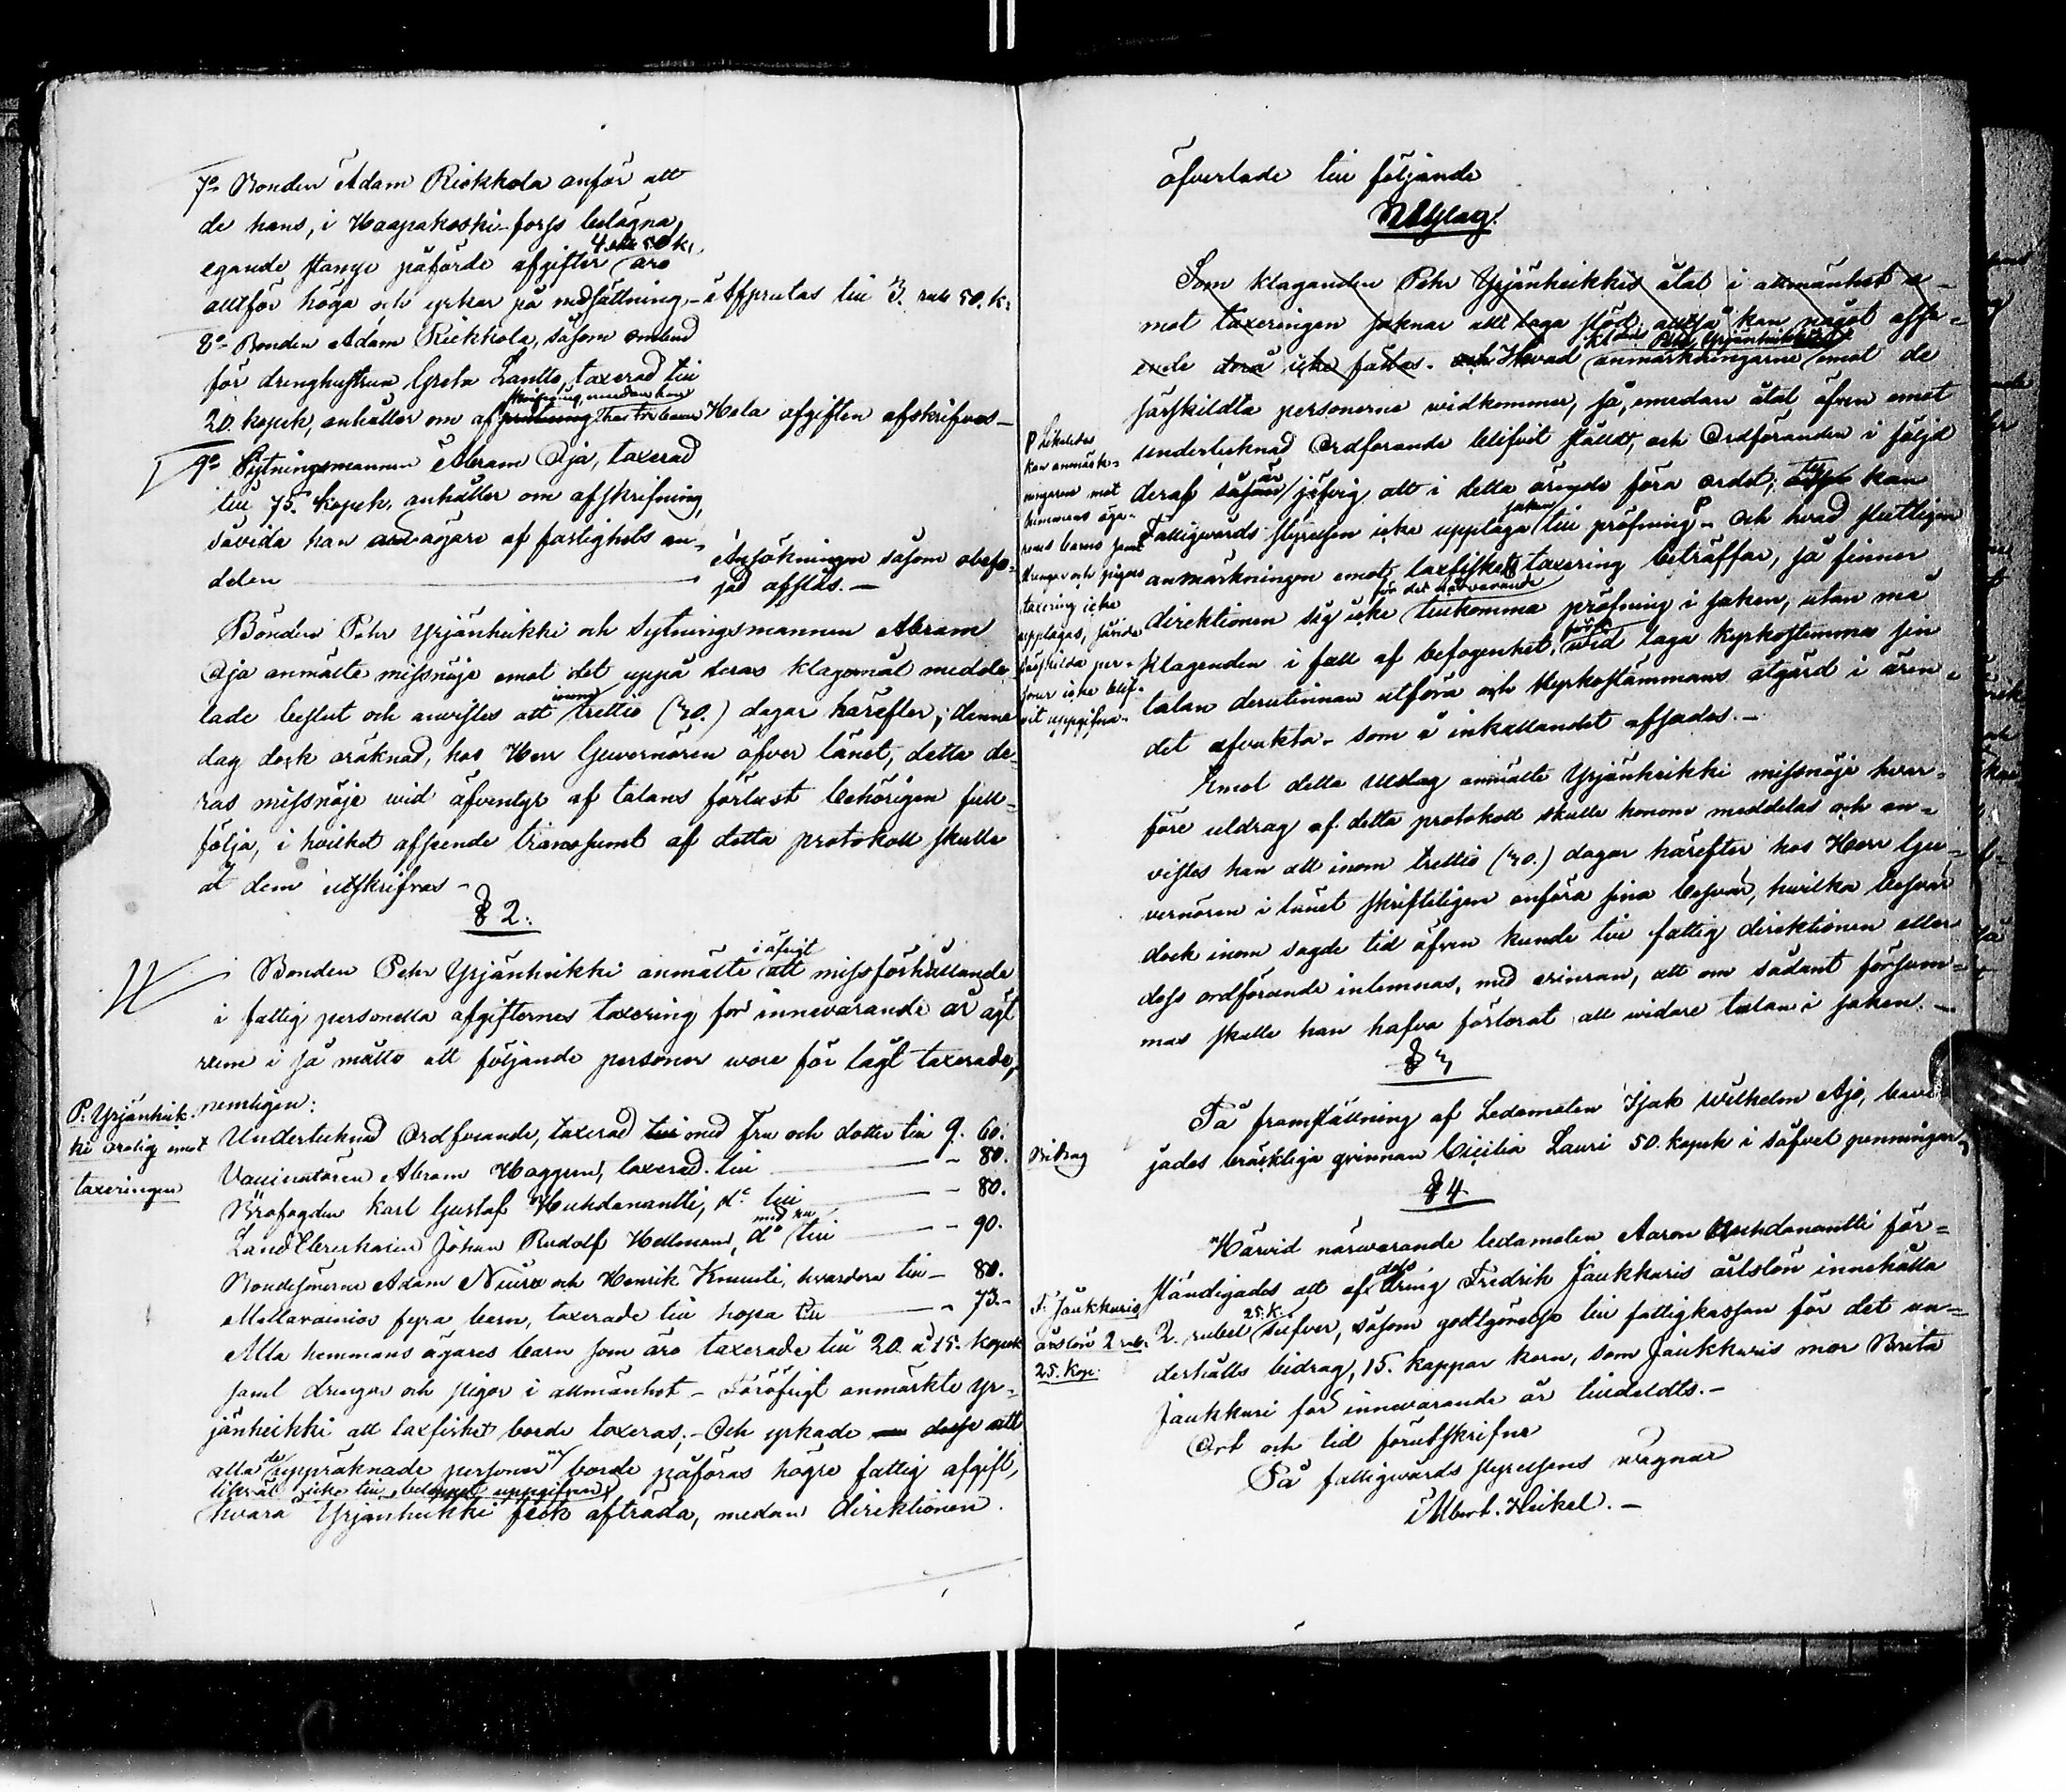 7o Bonden Adam Riekkola anför att
de hans, i Haapakoski-forss belägna,
4 rub 50 k.
egande stånge påförde afgifter äro
alltför höga och yrkar på nedsättning. - Afprutas till 3. rub 50. k:
8o Bonden Adam Riekkola, såsom ombud
för drenghustrun Greta Lantto, taxerad till
skrifning, emedan hon
20. kopek, anhåller om af har tre barn Hela afgiften afskrifves -
9o Sytningsmannen Abram Oja, taxerad
till 75. kopek, anhåller om afskrifning,
såvida han är ägare af fastighets an-
delen
Ansökningen såsom obefo-
gad afslås. -
Bonden Pehr Yrjänheikki och Sytningsmannen Abram
Oja anmälte missnöje emot det uppå deras klagomål medde-
inom
lade beslut och anvistes att trettio (30.) dagar härefter, denna
dag dock oräknad, hos Herr Guvernören öfver länet, detta de-
ras missnöje wid äfventyr af talans förlust behörigen full-
följa, i hvilket afseende transsumt af detta protokoll skulle
åt dem utskrifvas -
§ 2.
i öfrigt
Bonden Pehr Yrjänheikki anmälte att missförhållande
i fattig personella afgifternes taxering för innevarande år ägt
rum i så måtto att följande personer wore för lågt taxerade,
nemligen:
P. Yrjänheik-
ki orolig emot
taxeringen
Undertecknad Ordförande, taxerad med Fru och dotter till 9. 60.
Vaccinatören Abram Haggren, taxerad till - 80.
Brofogden Karl Gustaf Huhdanantti, do till - 80.
med
Johan Rudolf Hellman, do till - 90.
Bondesönerne Adam Niura och Henrik Knuuti, hvardera till - 80.
Mattavainios fyra barn, taxerade till hopa till - 75. -
Alla hemmans ägares barn som äro taxerade till 20 à 15. kopek
samt drengar och pigor i allmänhet - Föröfrigt anmärkte Yr-
jänheikki att laxfisket borde taxeras; - Och yrkade att
de
alla uppräknade personer borde påföras högre fattig afgift,
likväl icke till beloppet uppgifven,
hvarå Yrjänheikki feck afträda, medan direktionen
öfverlade till följande
Utslag.
Som klaganden Pehr Yrjänheikkis åtal i allmänhet e-
mot taxeringen saknar allt laga stöd, alltså kan något afse-
Pehr Yrjänheikkis
ende derå icke fästas. Hvad anmärkningarne emot de
särskildta personerne widkommer, så, emedan åtal äfven emot
undertecknad Ordförande blifvit ställdt, och Ordföranden i följd
är
deraf jäfvig att i detta ärende föra ordet; kan
saken
Fattigvårds styrelsen icke upptaga till pröfning. - Och hvad slutligen
anmärkningen emot laxfiskets taxering beträffar, så finner
för det närvarande
direktionen sig icke tillkomma pröfning i saken, utan må
först
klaganden i fall af befogenhet, wid laga kyrkostemma sin
talan derutinnan utföra och Kyrkostämmans åtgärd i ären-
det afvakta - som å inkallandet afsades. -
P Likaledes
kan anmärk-
ningarne mot
hemmans äga-
rens barns samt
drengar och pigors
taxering icke
upptagas, såvida
särskilda per-
soner icke blif-
vit uppgifna.
Emot detta Utslag anmälte Yrjänheikki missnöje hvar-
före utdrag af detta protokoll skulle honom meddelas och an-
vistes han att inom trettio (30.) dagar härefter hos Herr Gu-
vernören i länet skriftligen anföra sina besvär, hvilka besvär
dock inom sagde tid äfven kunde till fattig direktionen eller
dess ordförande inlemnas, med erinran, att om sådant försum-
mas skulle han hafva förlorat all widare talan i saken. -
§ 3
På framställning af Ledamoten Isak Wilhelm Ajo, bevil-
jades bräckliga qvinnan Cicilia Lauri 50. kopek i såfvel penningar,
Bidrag
§ 4.
Härvid närwarande ledamoten Aaron Huhdanantti för-
dess
ständigades att af dräng Fredrik Jaukkuris årslön innehålla
25. k.
2. rubel silfver, såsom godtgörelse till fattigkassan för det un-
derhålls bidrag, 15. kappar korn, som Jaukkuris mor Brita
Jaukkuri för innevarande år tilldeldts. -
F. Jaukkuris
årslön 2 rub.
25. kop.
Ort och tid förutskrifne
På fattigvårds styrelsens vägnar
Albert. Heikel. -